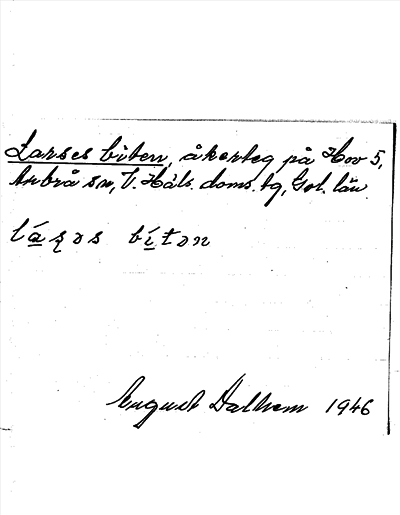 Larses biten, åkerteg på Hov 5,
Arbrå sn, V. Häls. doms. tg, Gvl. län.
lása̱s bít̠ən
August Dalhem 1946